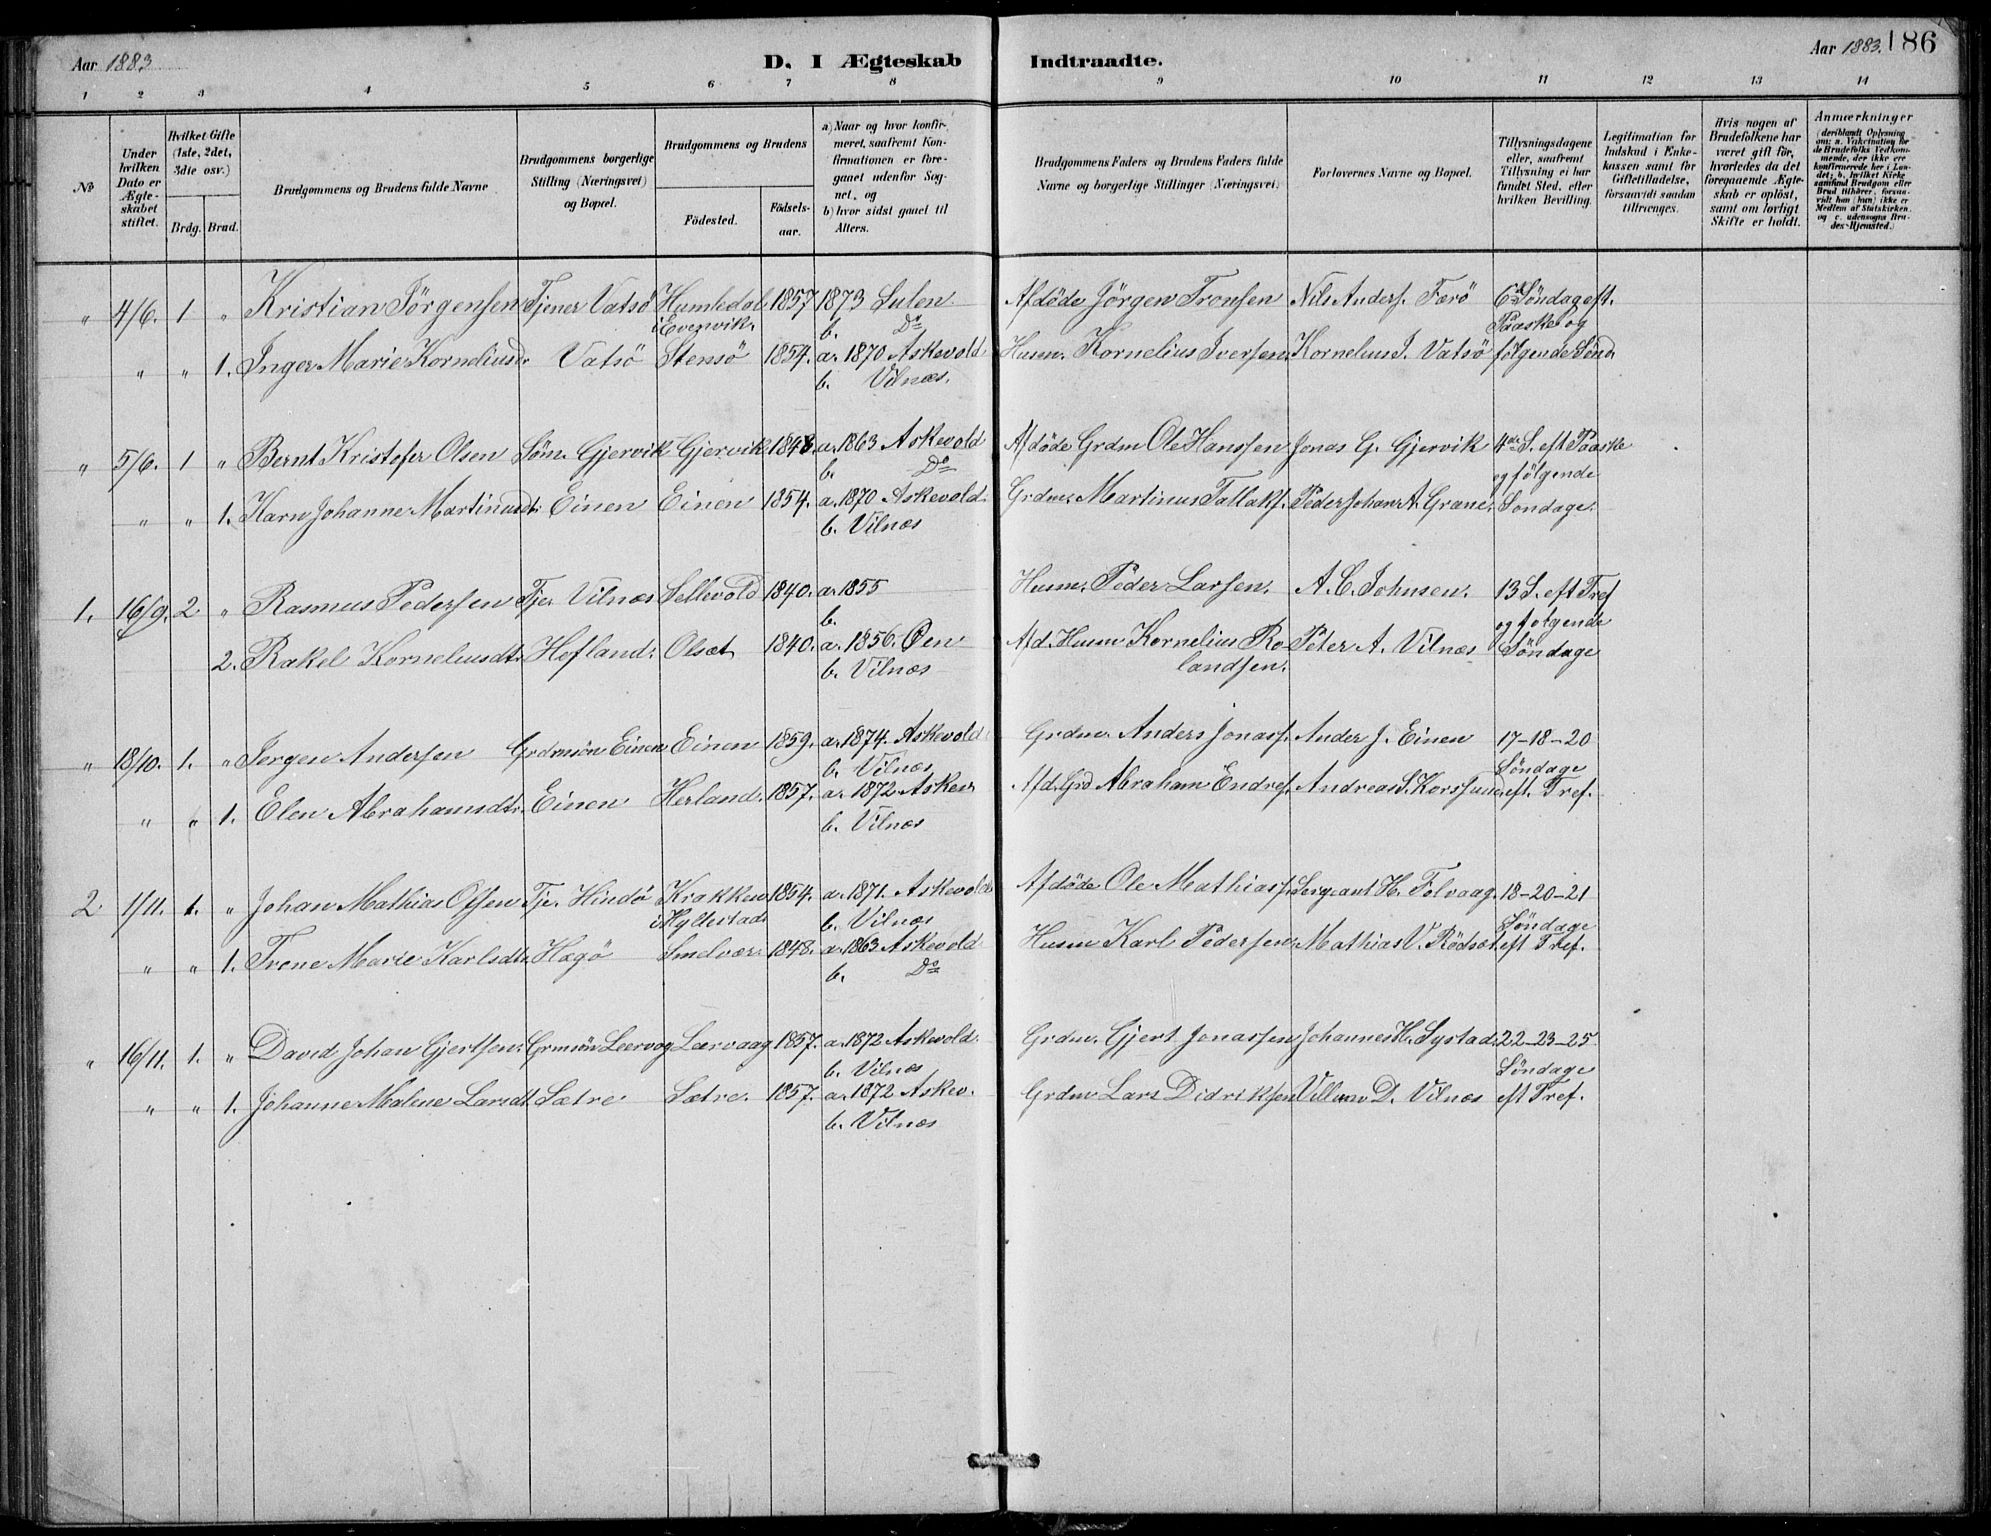 Aar 1883 D. I Ægteskab Indtraadte. Aar 1883. 186
1 2 3 4 5 6 7 8 9 10 11 12 13 14
№
Under hvilken Dato er Ægteskabet stiftet.
Hvilket Gifte (1ste, 2det, 3die osv.)
Brdg. Brud.
Brudgommens og Brudens fulde Navne
Brudgommens borgerlige Stilling (Næringsvei) og Bopæl.
Brudgommens og Brudens
Fødested. Fødselsaar.
a) Naar og hvor konfirmeret, saafremt Konfirmationen er foregaaet udenfor Sognet, og
b) hvor sidst gaaet til Alters.
Brudgommens Faders og Brudens Faders fulde Navne og borgerlige Stillinger (Næringsvei)
Forlovernes Navne og Bopæl.
Tillysningsdagene eller, saafremt Tillysning ei har fundet Sted, efter hvilken Bevilling.
Legitimation for Indskud i Enkekassen samt for Giftetilladelse, forsaavidt saadan tiltrænges.
Hvis nogen af Brudefolkene har været gift før, hvorledes da det foregaaende Ægteskab er opløst, samt om lovligt Skifte er holdt.
Anmærkninger
(deriblandt Oplysning om: a. Vakcination for de Brudefolks Vedkommende, der ikke ere konfirmerede her i Landet; b. hvilket Kirkesamfund Brudgom eller Brud tilhører, forsaavidt han (hun) ikke er Medlem af Statskirken, og c. udensogns Brudes Hjemsted.)
" 4/6. 1 " Kristian Jörgensen Tjener Vatsö Humledal i Evenvik. 1857 1873 Sulen Afdöde Jörgen Tronsen Nils Anders. Færö 6te Söndag eft.
b. Do Paaske og
" " 1. Inger Marie Korneliusd. Vatsö Stensö 1854. a. 1870 Askevold. Husm. Kornelius Iversen. Kornelius J. Vatsö følgende Sönd.
b. Vilnæs.
" 5/6. 1 " Bernt Kristofer Olsen Søn. Gjervik Gjervik 1848. a. 1863 Askevold Afdöde Grdm Ole Hanssen Jonas G. Gjervik 4de S. eft Paaske
b. Do og følgende
" " 1. Karn Johanne Martinusdt. Einen Einen 1854. a. 1870 Askevold. Grdm. Martinus Tallaks. Peder Johan A. Grane. Söndage.
b. Vilnæs
1. 16/9. 2 " Rasmus Pedersen Tje. Vilnæs Sellevold 1840. a. 1855 Husm. Peder Larsen. A. C. Johnsen. 13 S. eft Tref
b. og følgende
2. Rakel Korneliusdtr. Hofland. Olset 1840. a. 1856. Øen Afd. Husm Kornelius Rolandsen. Peter A. Vilnæs Söndage
b. Vilnæs
" 18/10. 1. " Jørgen Andersen Grdmsön Einen Einen 1859. a. 1874. Askevold. Grdm. Anders Jonass. Ander J. Einen 17-18-20
b. Vilnæs Söndage
" " 1. Elen Abrahamsdtr. Einen Herland. 1857. a. 1872 Askev. Afd. Grd Abraham Endres. Andreas S. Korssund. eft. Tref.
b. Vilnæs
2 1/11. 1. " Johan Mathias Olsen Tje. Hindö Krakken i Hyllestad 1854. a. 1871. Askevold Afdöde Ole Mathias. Sergeant H. Folvaag. 18-20-21
b. Vilnæs Söndage
" " 1. Trene Marie Karlsdtr. Hægö Smelvær. 1848. a. 1863 Askevold Husm Karl Pedersen. Mathias V. Rödset. eft Tref.
b. Do
" 16/11. 1. " David Johan Gjertsen. Grmsön Leervag Lærvaag 1857. a. 1872 Askevold. Grdm. Gjert Jonassen Johannes H. Systad. 22-23-25
b. Vilnæs Söndage
" " 1. Johanne Malene Larsdt. Sætre Sætre. 1857. a. 1872 Askev. Grdm Lars Didriksen Villum D. Vilnæs eft Tref.
b. Vilnæs